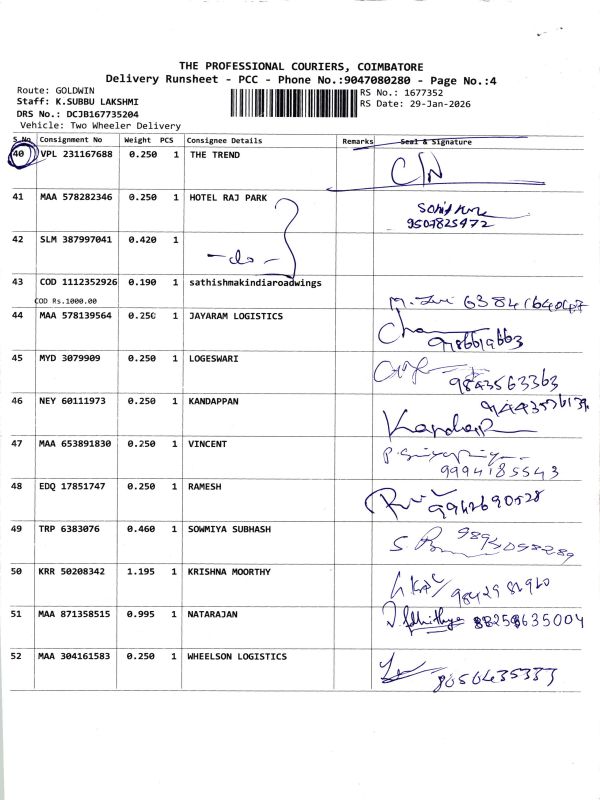 THE PROFESSIONAL COURIERS, COIMBATORE
Delivery Runsheet - PCC - Phone No.:9047080280 - Page No.:4
Route: GOLDWIN
Staff: K.SUBBU LAKSHMI
DRS No.: DCJB167735204
Vehicle: Two Wheeler Delivery
RS No.: 1677352
RS Date: 29-Jan-2026
S.No Consignment No Weight PCS Consignee Details Remarks Seal & Signature
40 VPL 231167688 0.250 1 THE TREND C/N
41 MAA 578282346 0.250 1 HOTEL RAJ PARK
9507825472
42 SLM 387997041 0.420 1 -do-
43 COD 1112352926 0.190 1 sathishmakindiaroadwings
COD Rs.1000.00
44 MAA 578139564 0.250 1 JAYARAM LOGISTICS
45 MYD 3079909 0.250 1 LOGESWARI
9843563363
46 NEY 60111973 0.250 1 KANDAPPAN
47 MAA 653891830 0.250 1 VINCENT
9994185543
48 EDQ 17851747 0.250 1 RAMESH
9942690528
49 TRP 6383076 0.460 1 SOWMIYA SUBHASH
50 KRR 50208342 1.195 1 KRISHNA MOORTHY
51 MAA 871358515 0.995 1 NATARAJAN
52 MAA 304161583 0.250 1 WHEELSON LOGISTICS